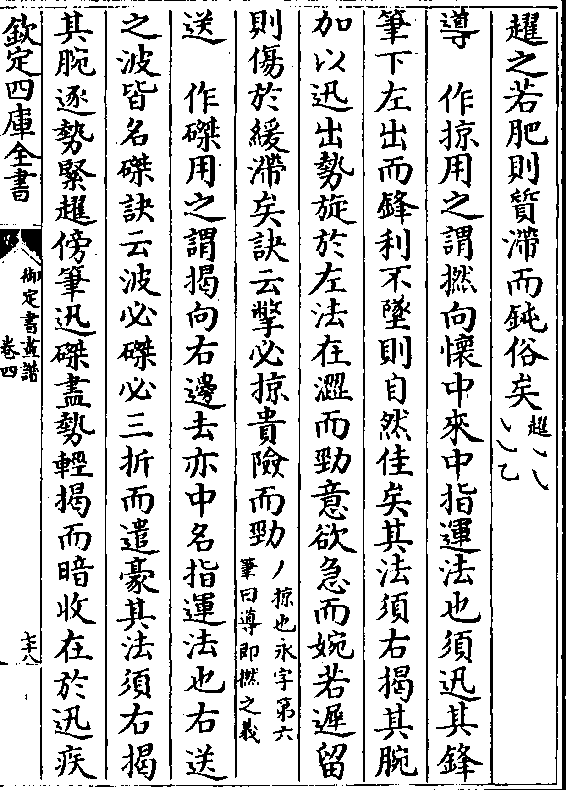 趯之若肥則質滯而鈍俗矣趯
導　作掠用之謂撚向懷中來中指運法也須迅其鋒
筆下左出而鋒利不墜則自然佳矣其法須右揭其腕
加以迅出勢旋於左法在澀而勁意欲急而婉若遲留
則傷於緩滯矣訣云撆必掠貴險而勁丿掠也永字第六
筆曰導即撚之義
送　作磔用之謂揭向右邊去亦中名指運法也右送
之波皆名磔訣云波必磔必三折而遣豪其法須右揭
其腕逐勢緊趯傍筆迅磔盡勢輕揭而暗收在於迅疾
欽定四庫全書
御定書畫譜
卷四
七十八